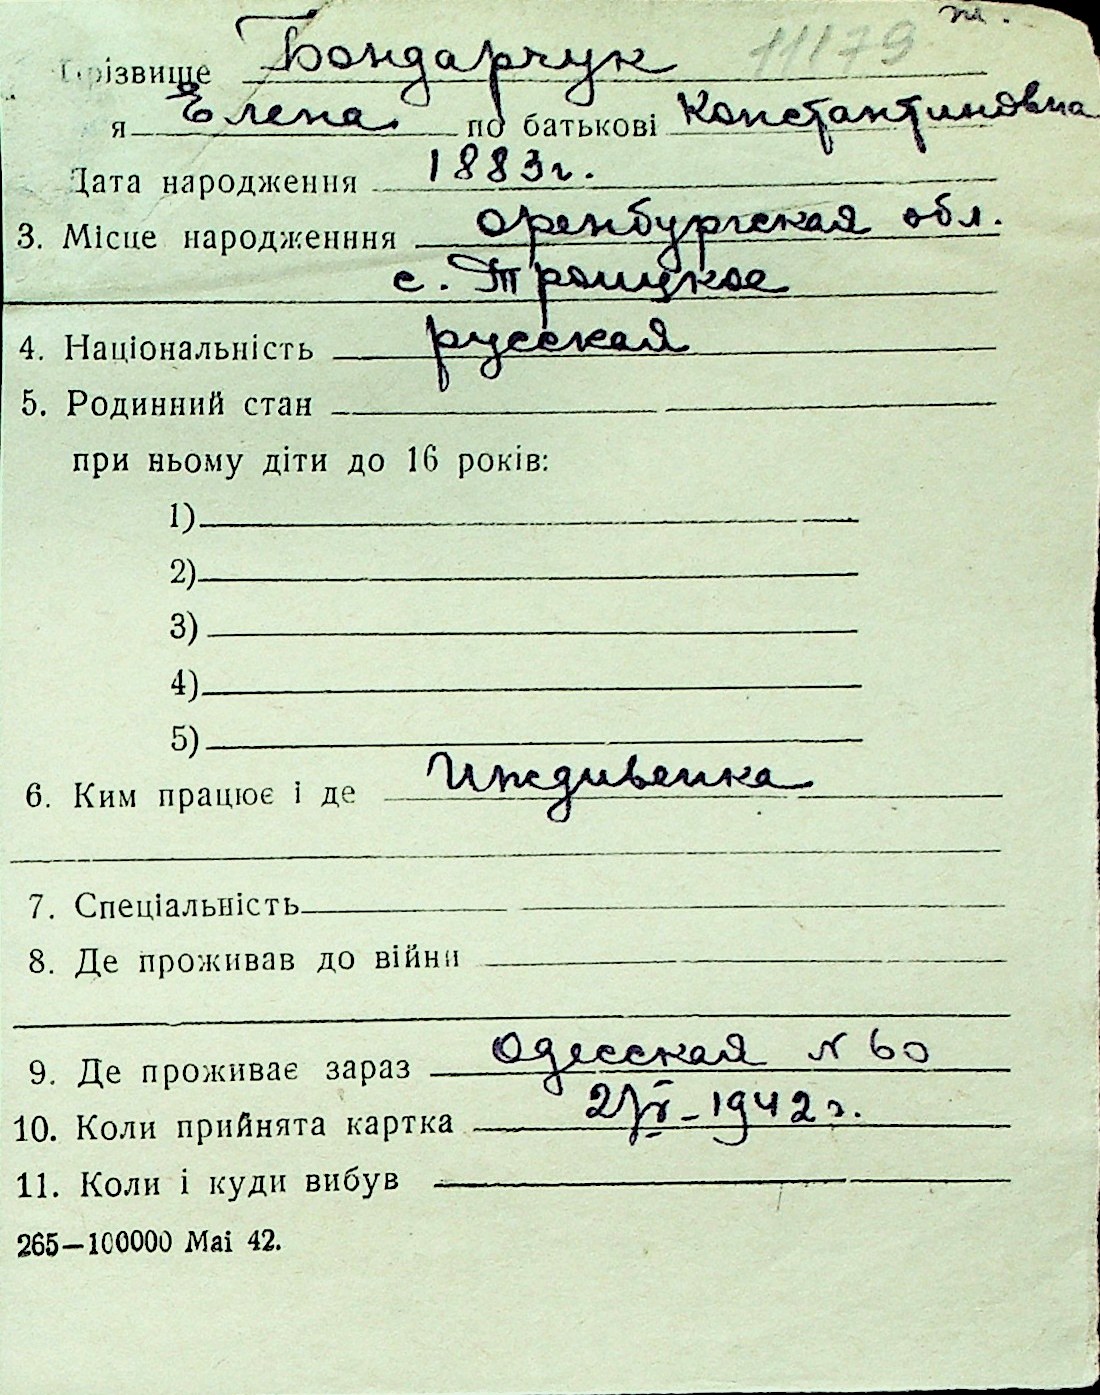 ж. 11179
Прізвище Бондарчук
я Елена по батькові Константиновна
Дата народження 1883г.
3. Місце народженння Оренбургская обл.
с. Троицкое
4. Національність русская
5. Родинний стан
при ньому діти до 16 років:
1)
2)
3)
4)
5)
6. Ким працює і де Иждивенка
7. Спеціальність
8. Де проживав до війни
9. Де проживає зараз Одесская N 60
10. Коли прийнята картка 2/VI-1942г.
11. Коли і куди вибув
265—100000 Mai 42.